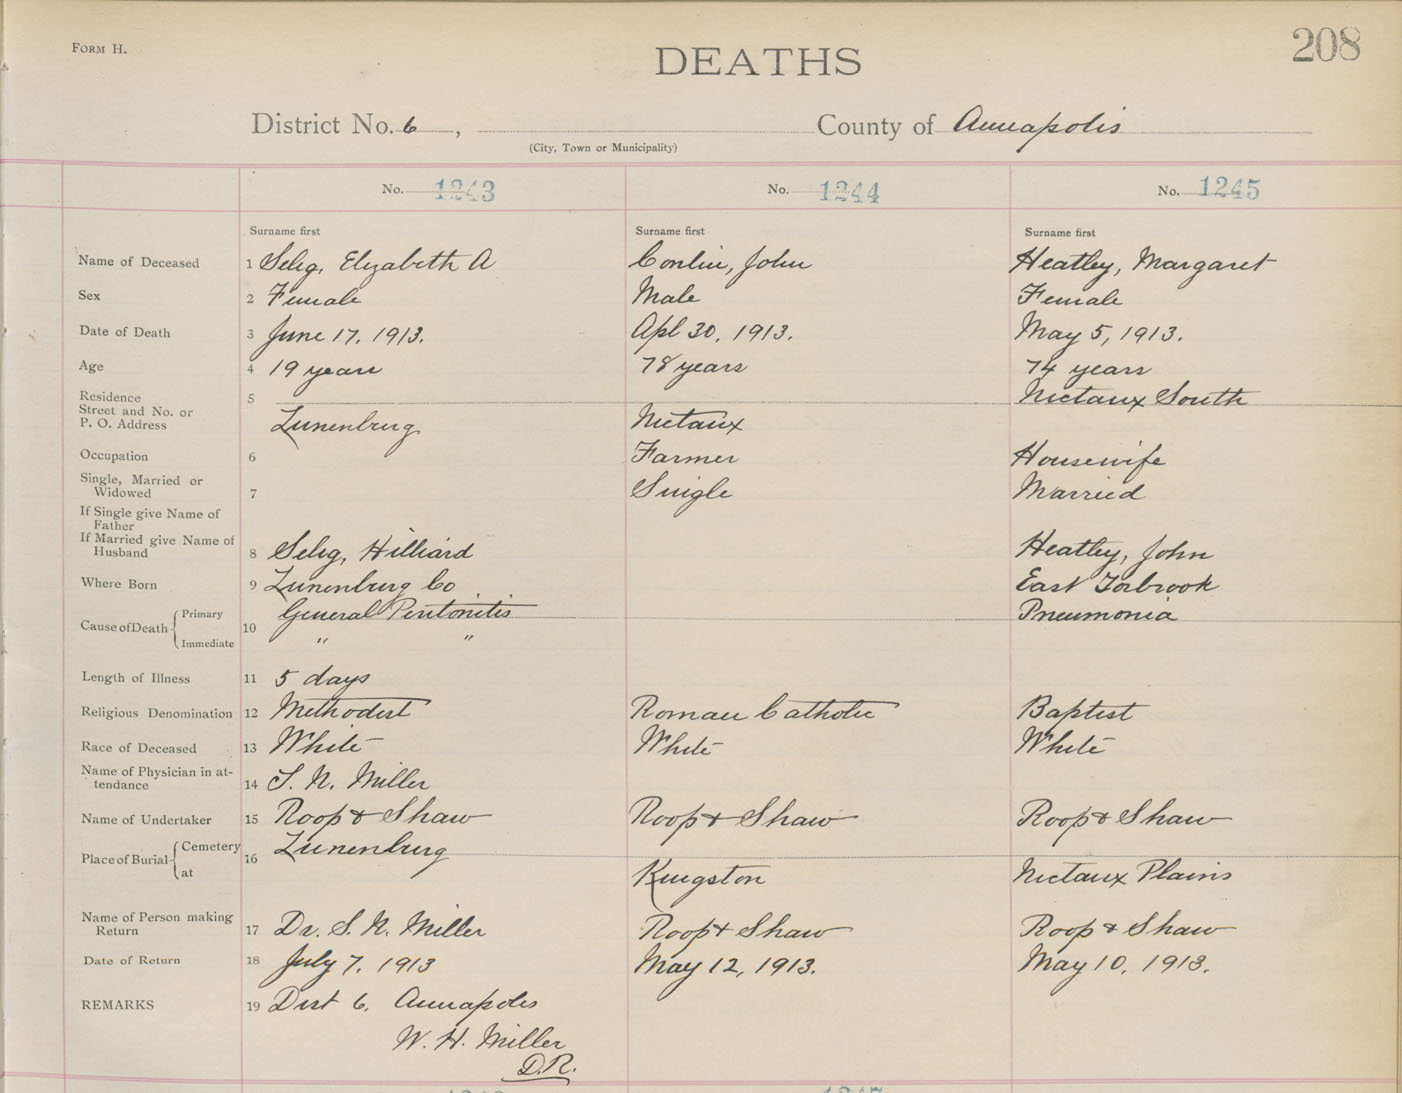 FORM H.
DEATHS
208
District No. 6, County of Annapolis
(City, Town or Municipality)
No. 1243 No. 1244 No. 1245
Surname first Surname first Surname first
Name of Deceased 1 Selig, Elizabeth A Conlin, John Heatley, Margaret
Sex 2 Female Male Female
Date of Death 3 June 17, 1913. Apl 30, 1913. May 5, 1913.
Age 4 19 years 78 years 74 years
Residence 5 Nictaux South
Street and No. or
P. O. Address Lunenburg Nictaux
Occupation 6 Farmer Housewife
Single, Married or
Widowed 7 Single Married
If Single give Name of
Father
If Married give Name of
Husband 8 Selig, Hilliard Heatley, John
Where Born 9 Lunenburg Co East Torbrook
Cause of Death Primary 10 General Peritonitis Pneumonia
Immediate " "
Length of Illness 11 5 days
Religious Denomination 12 Methodist Roman Catholic Baptist
Race of Deceased 13 White White White
Name of Physician in at-
tendance 14 S. N. Miller
Name of Undertaker 15 Roop & Shaw Roop & Shaw Roop & Shaw
Place of Burial Cemetery 16 Lunenburg
at Kingston Nictaux Plains
Name of Person making
Return 17 Dr. S. N. Miller Roop & Shaw Roop & Shaw
Date of Return 18 July 7, 1913 May 12, 1913. May 10, 1913.
REMARKS 19 Dist 6, Annapolis
W. H. Miller
D.R.